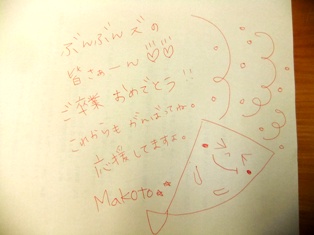 ぶんぶんズの
皆さぁーん!!!♡♡!!!
ご卒業 おめでとう!!
これからも がんばってね。
応援してますよ。
Makoto